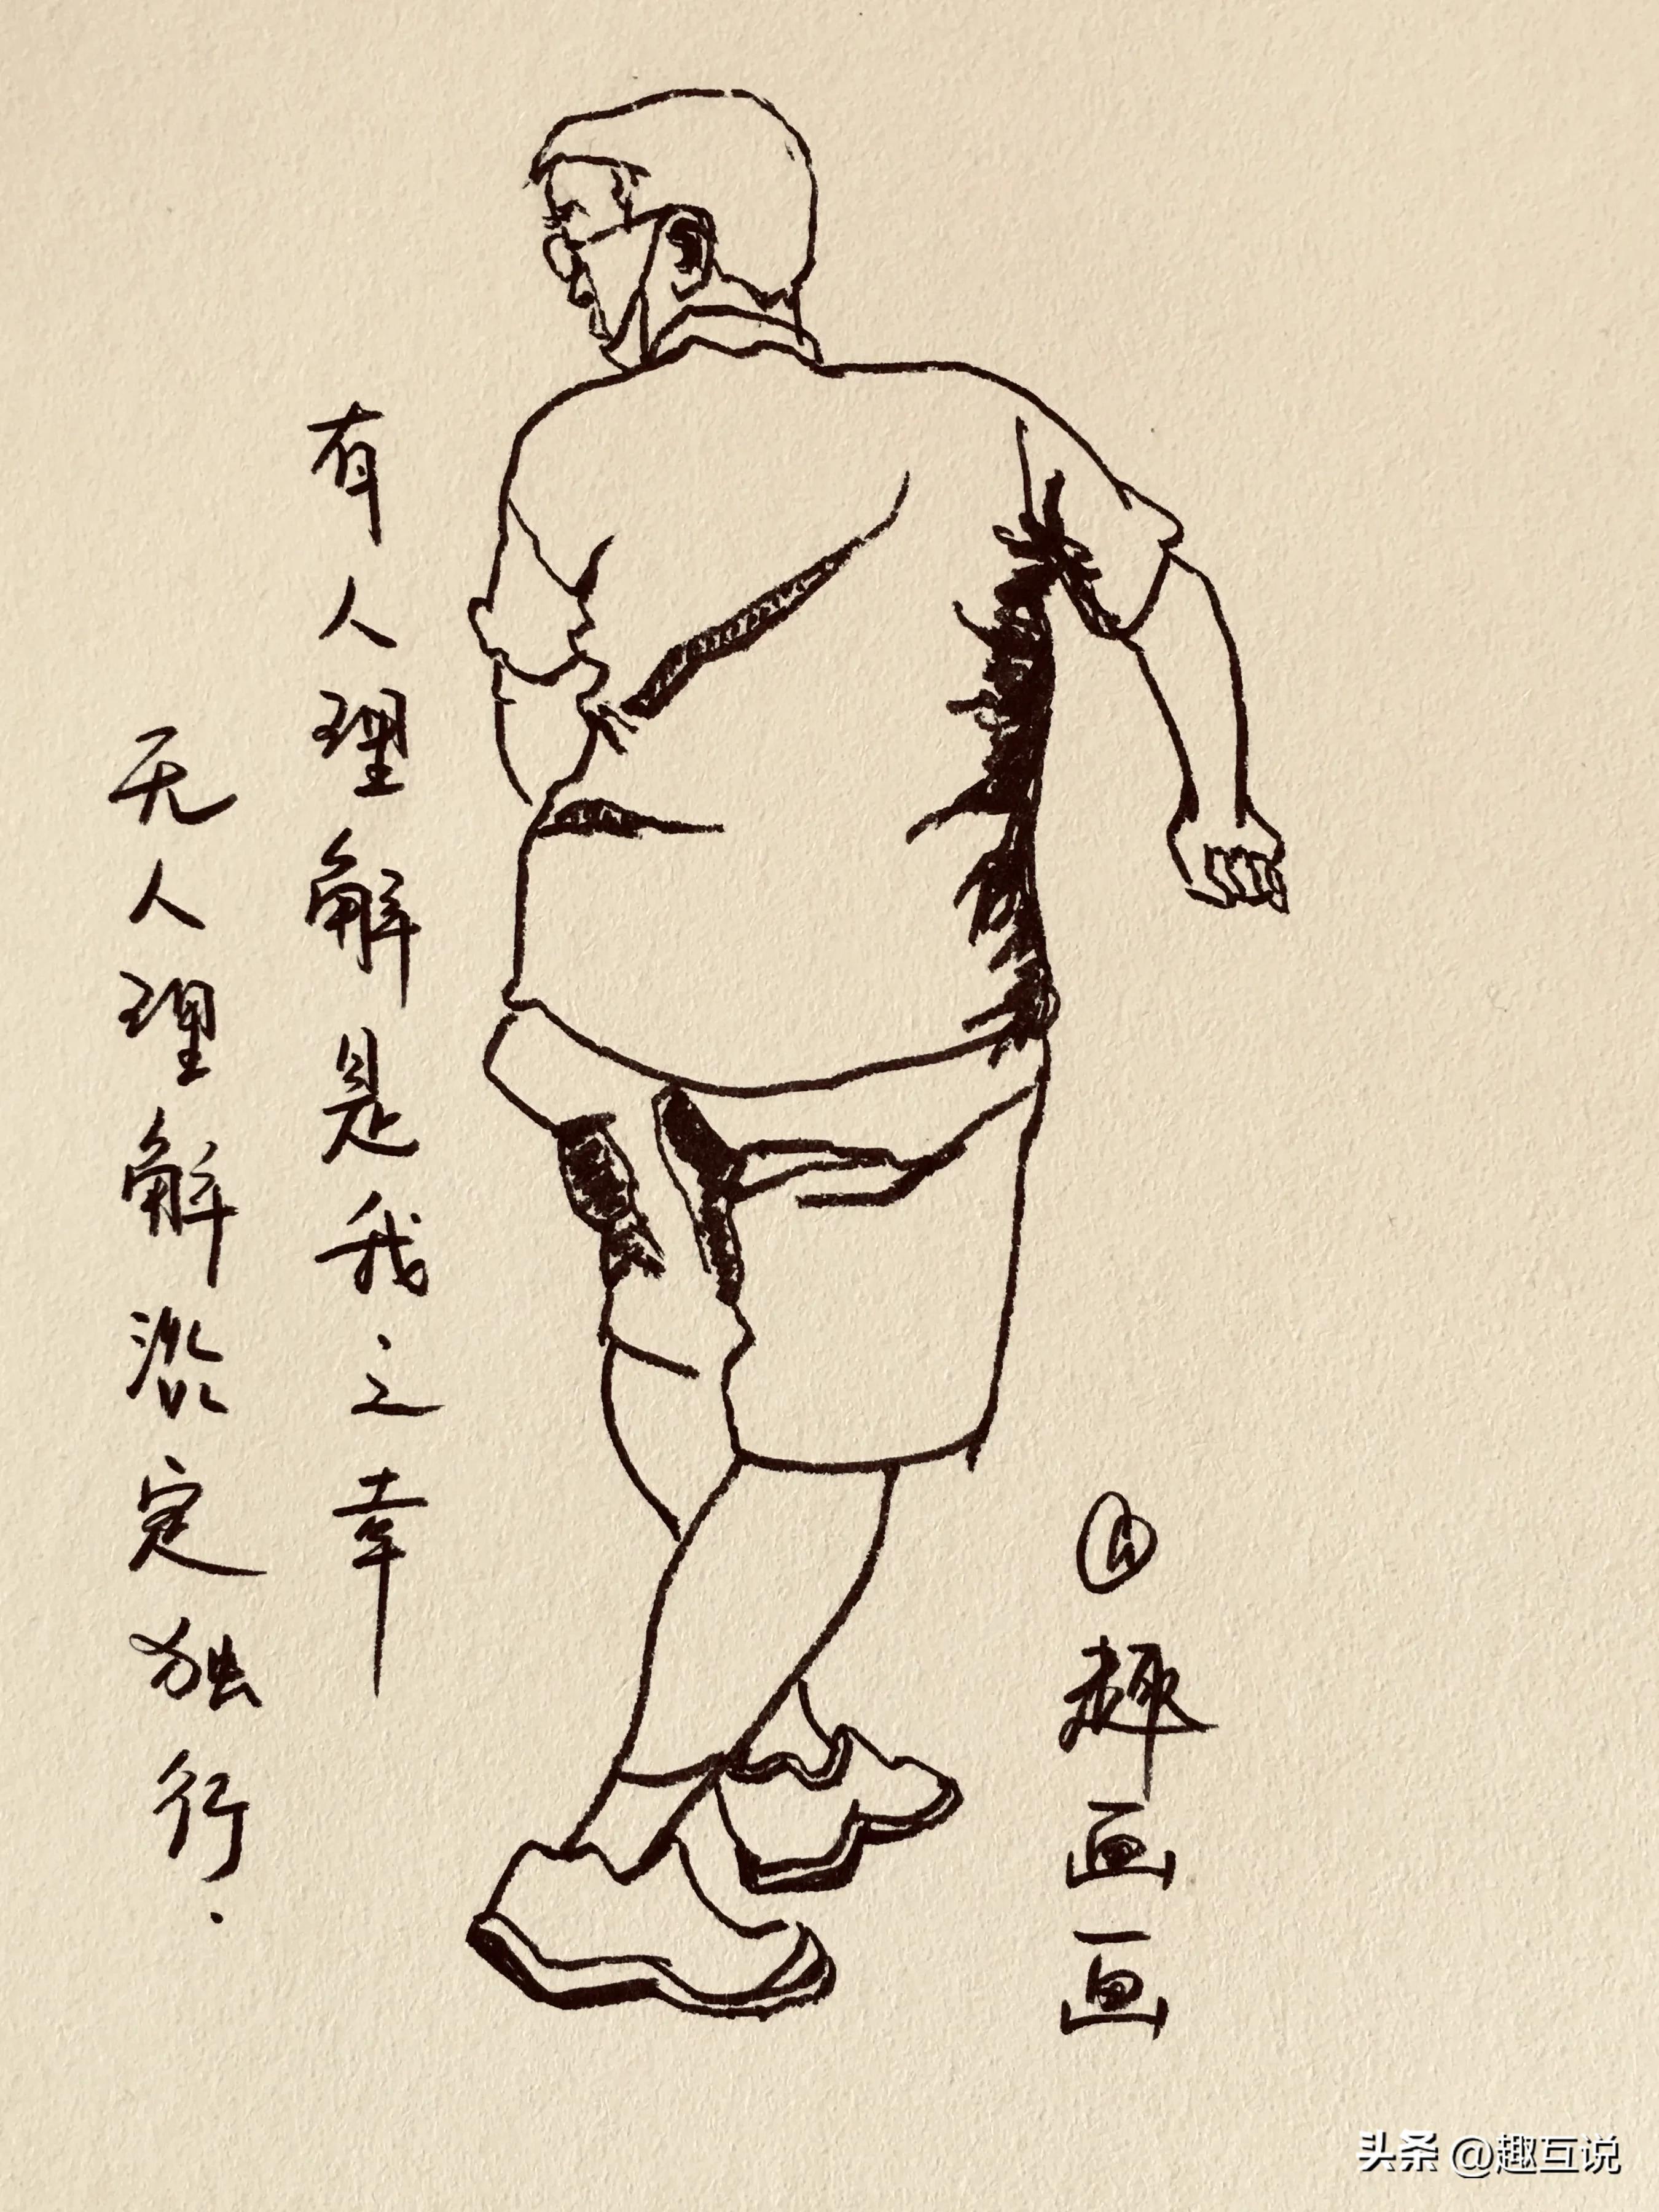 有人理解是我之幸
无人理解淡定独行.
@趣画画
头条 @趣互说